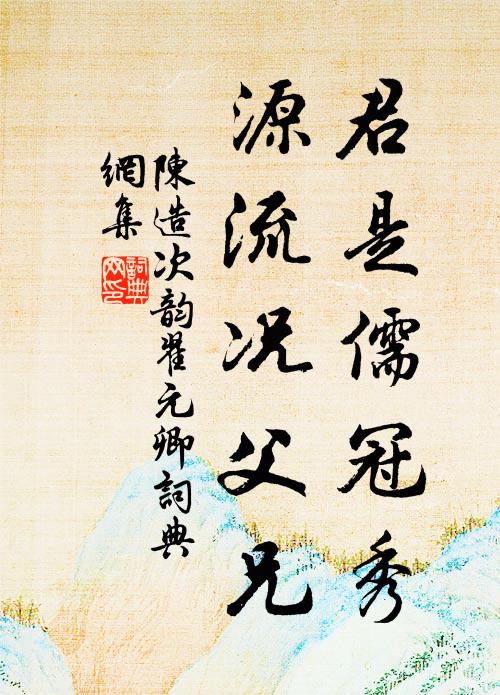 君是儒冠秀
源流况父兄
陳造次韵翟元卿詞典
網集
詞典網印